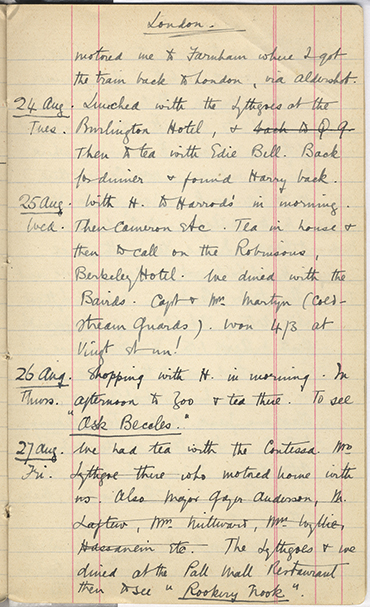 London.
motored me to Farnham where I got
the train back to London, via Aldershot.
24 Aug. Lunched with the Lythgoes at the
Tues. Burlington Hotel, & back to Q. G.
Then to tea with Edie Bell. Back
for dinner & found Harry back.
25 Aug. With H. to Harrods' in morning.
Wed. Then Cameron etc. Tea in house &
then to call on the Robinsons,
Berkeley Hotel. We dined with the
Bairds. Capt & Mrs Martyn (Cold-
stream Guards). Won 4/3 at
Vingt et un!
26 Aug. Shopping with H. in morning. In
Thurs. afternoon to Zoo & tea there. To see
"Ask Beccles."
27 Aug. We had tea with the Contessa. Mrs
Fri. Lythgoe there who motored home with
us. Also Major Gayer Anderson, M.
Mrs Millward, Mr Wyllie,
Hassanein etc. The Lythgoes & we
dined at the Pall Mall Restaurant
then to see "Rookery Nook".